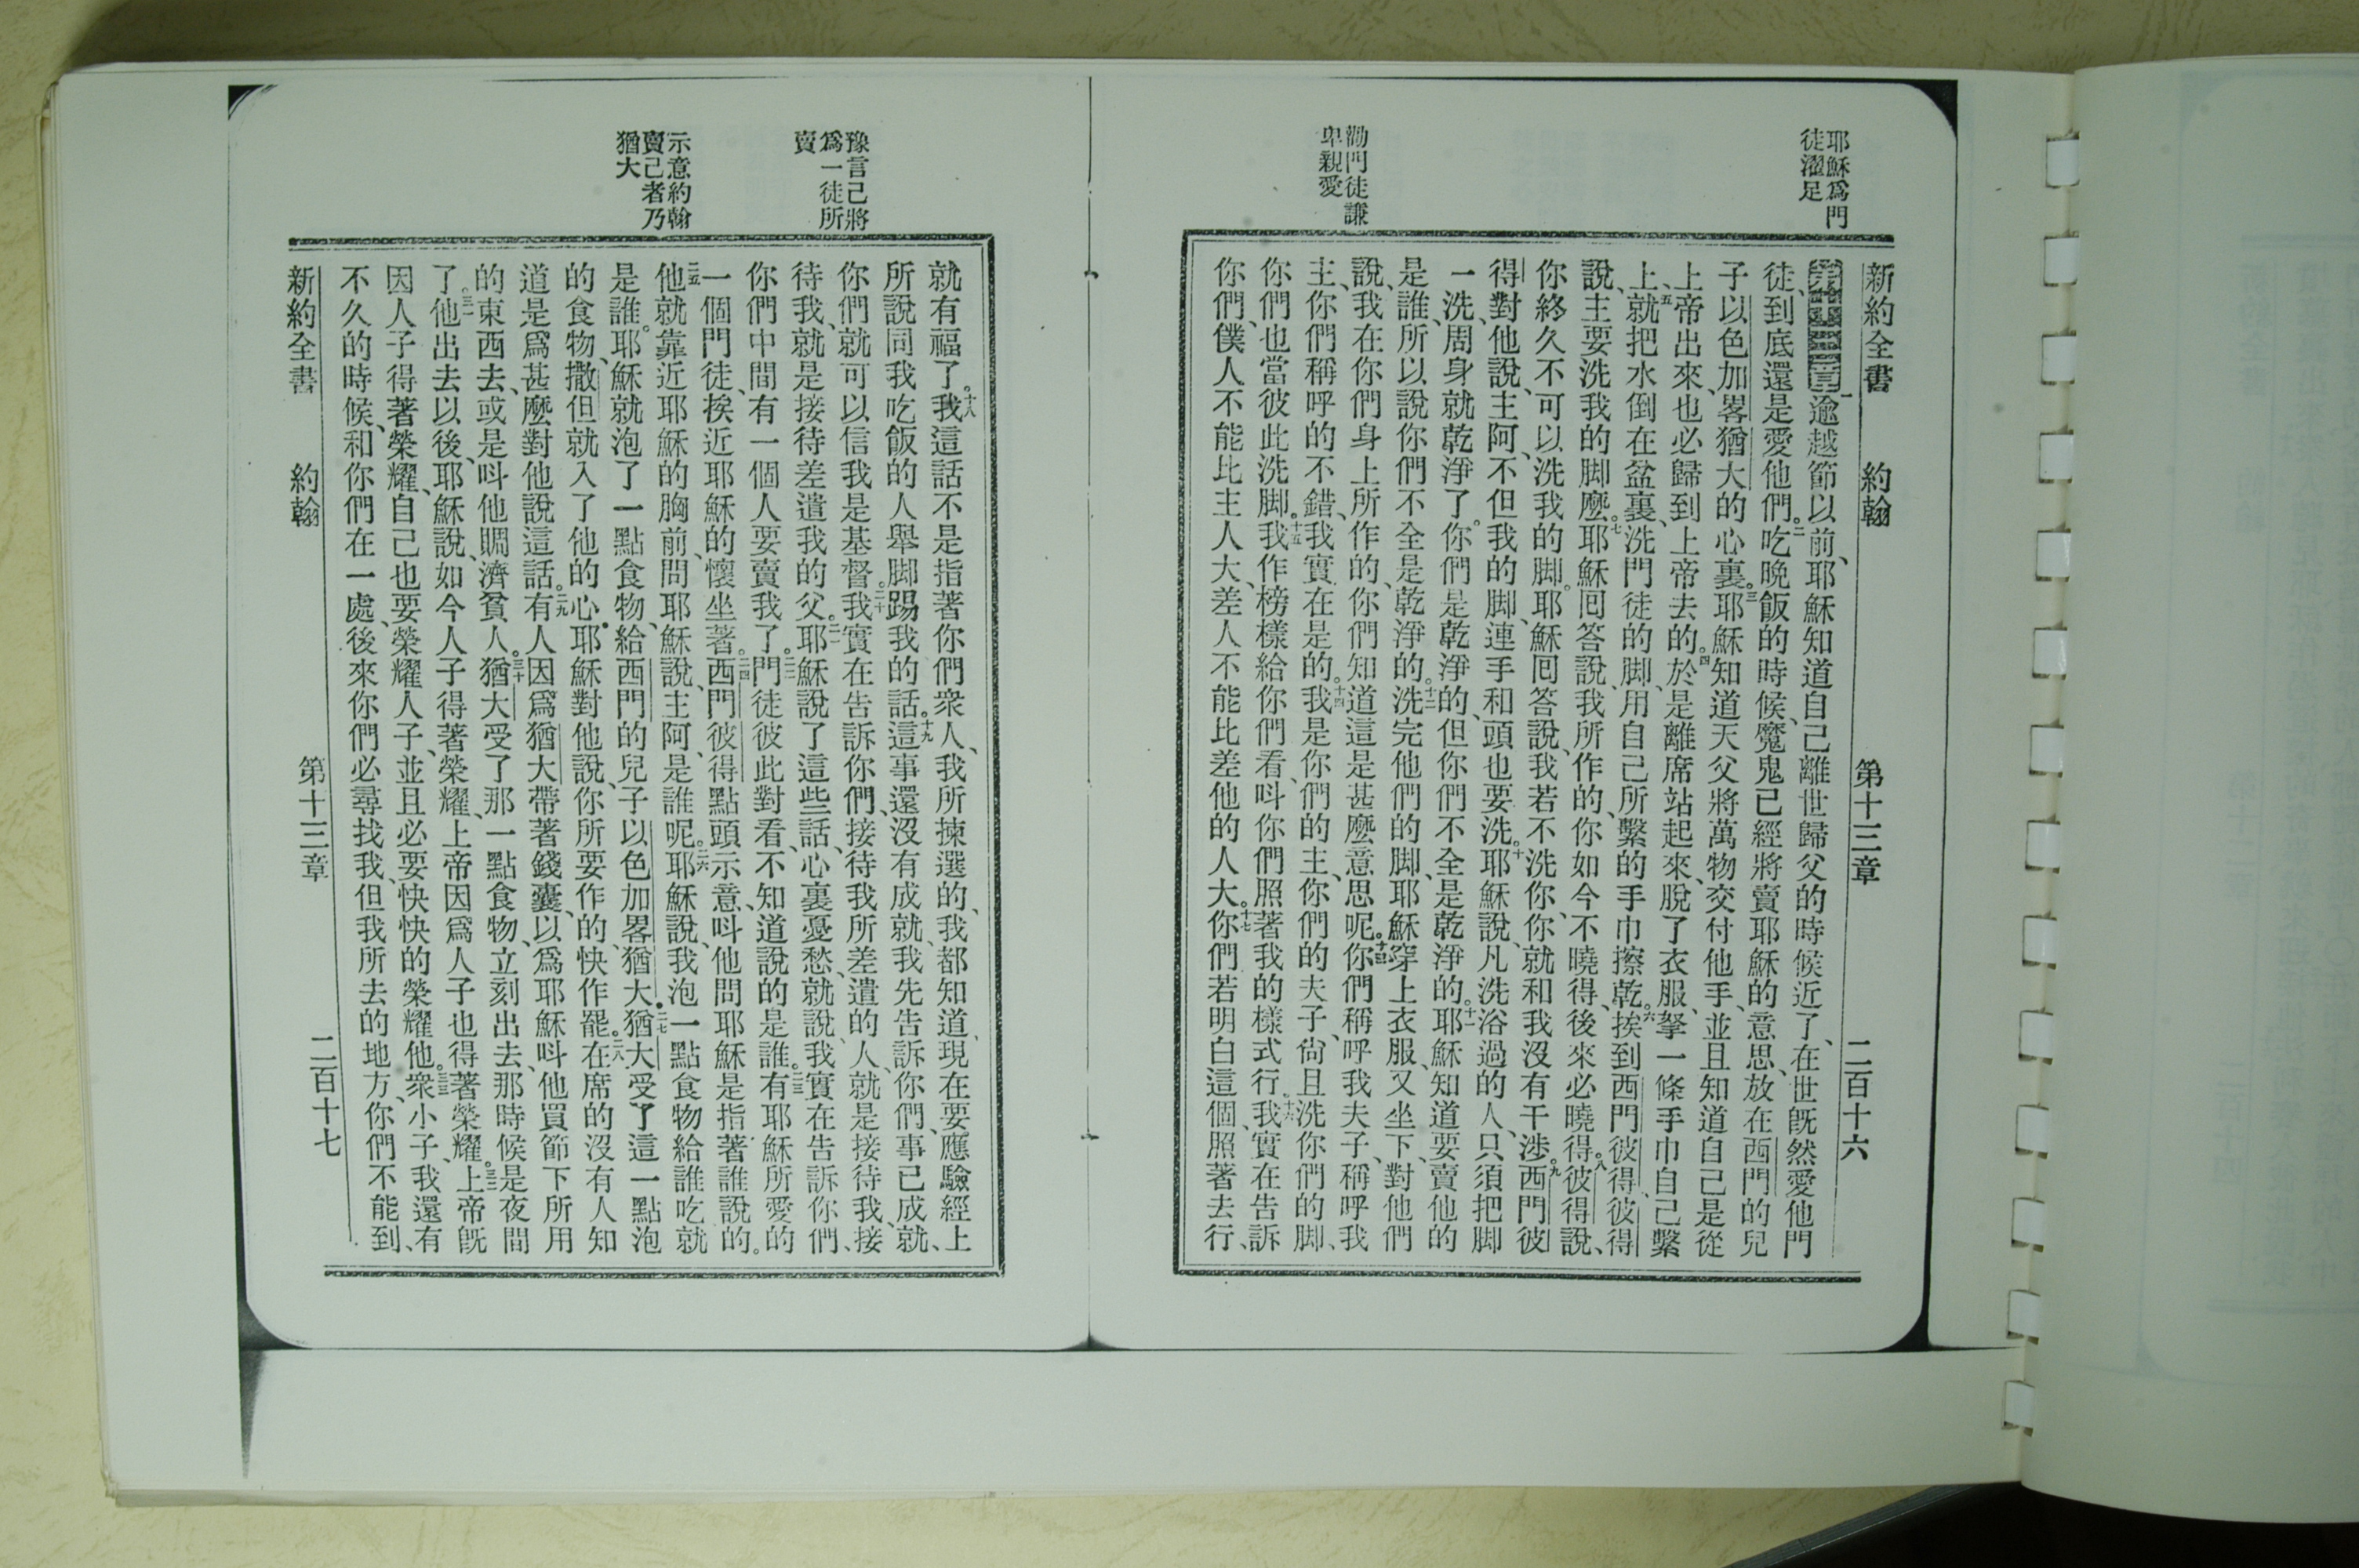 耶穌爲門
徒濯足
勸門徒謙
卑親愛
新約全書 約翰 第十三章 二百十六
第十三章一逾越節以前、耶穌知道自己離世歸父的時候近了、在世旣然愛他門
徒、到底還是愛他們。二吃晚飯的時候、魔鬼已經將賣耶穌的意思、放在西門的兒
子以色加畧猶大的心裏。三耶穌知道天父將萬物交付他手、並且知道自己是從
上帝出來、也必歸到上帝去的。四於是離席站起來、脫了衣服、拏一條手巾自己繫
上、五就把水倒在盆裏、洗門徒的脚、用自己所繫的手巾擦乾。六挨到西門彼得、彼得
說、主要洗我的脚麽。七耶穌回答說、我所作的、你如今不曉得、後來必曉得。八彼得說、
你終久不可以洗我的脚。耶穌回答說、我若不洗你、你就和我沒有干涉。九西門彼
得對他說、主阿、不但我的脚、連手和頭也要洗。十耶穌說、凡洗浴過的人、只須把脚
一洗、周身就乾淨了。你們是乾淨的、但你們不全是乾淨的。十一耶穌知道要賣他的
是誰、所以說你們不全是乾淨的。十二洗完他們的脚、耶穌穿上衣服、又坐下、對他們
說、我在你們身上所作的、你們知道這是甚麽意思呢。十三你們稱呼我夫子、稱呼我
主、你們稱呼的不錯、我實在是的。十四我是你們的主、你們的夫子、尙且洗你們的脚、
你們也當彼此洗脚。十五我作榜樣給你們看、呌你們照著我的樣式行。十六我實在告訴
你們、僕人不能比主人大、差人不能比差他的人大。十七你們若明白這個、照著去行、
豫言己將
爲一徒所
賣
示意約翰
賣己者乃
猶大
就有福了。十八我這話不是指著你們衆人、我所揀選的、我都知道、現在要應驗經上
所說同我吃飯的人舉脚踢我的話。十九這事還沒有成就、我先告訴你們、事已成就、
你們就可以信我是基督。二十我實在告訴你們、接待我所差遣的人、就是接待我、接
待我、就是接待差遣我的父。二一耶穌說了這些話、心裏憂愁、就說、我實在告訴你們、
你們中間、有一個人要賣我了。二二門徒彼此對看、不知道說的是誰。二三有耶穌所愛的
一個門徒、挨近耶穌的懷坐著。二四西門彼得點頭示意、呌他問耶穌是指著誰說的。
二五他就靠近耶穌的胸前、問耶穌說、主阿、是誰呢。二六耶穌說、我泡一點食物給誰吃就
是誰。耶穌就泡了一點食物、給西門的兒子以色加畧猶大。二七猶大受了這一點泡
的食物、撒但就入了他的心。耶穌對他說、你所要作的、快作罷。二八在席的沒有人知
道是爲甚麽對他說這話。二九有人因爲猶大帶著錢囊、以爲耶穌呌他買節下所用
的東西去、或是呌他賙濟貧人。三十猶大受了那一點食物、立刻出去、那時候是夜間
了。三一他出去以後、耶穌說、如今人子得著榮耀、上帝因爲人子也得著榮耀。三二上帝旣
因人子得著榮耀、自己也要榮耀人子、並且必要快快的榮耀他。三三衆小子、我還有
不久的時候、和你們在一處、後來你們必尋找我、但我所去的地方、你們不能到、
新約全書 約翰 第十三章 二百十七